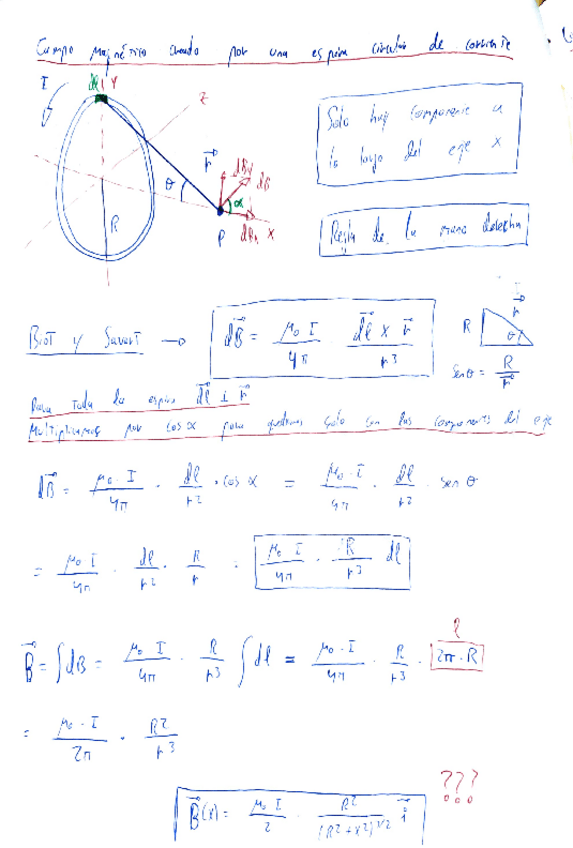 Campo magnético creado por una espira circular de corriente
I dl Y
Z
Solo hay componente a
lo largo del eje X
r⃗ dBy dB
θ α
R P dBx X
Regla de la mano derecha
Biot y Savart → dB⃗ = μ₀ I / 4π · dl⃗ × r⃗ / r³
R r⃗ θ
senθ = R / r⃗
Para toda la espira dl⃗ ⊥ r⃗
Multiplicamos por cos α para quedarnos solo con las componentes del eje
dB⃗ = μ₀ · I / 4π · dl / r² · cos α = μ₀ · I / 4π · dl / r² · sen θ
= μ₀ I / 4π · dl / r² · R / r = μ₀ I / 4π · R / r³ dl
l
B⃗ = ∫ dB = μ₀ I / 4π · R / r³ ∫ dl = μ₀ · I / 4π · R / r³ · 2π · R
= μ₀ · I / 2π · R² / r³
???
B⃗(x) = μ₀ I / 2 · R² / (R² + x²)^3/2 i⃗